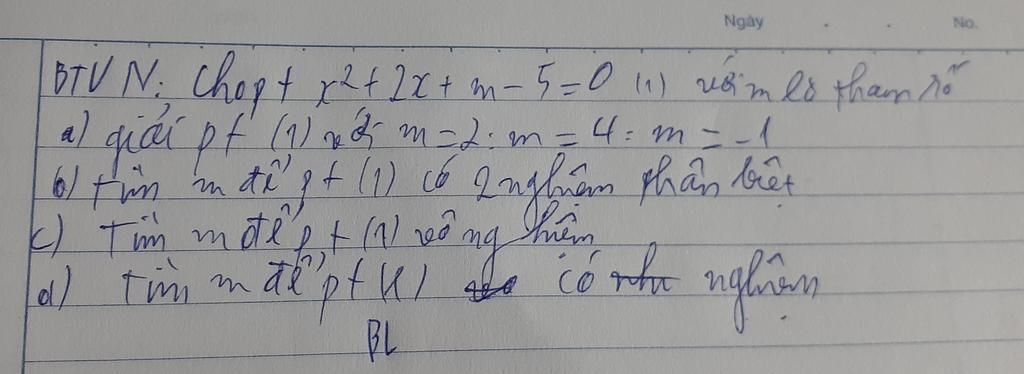 Ngày . . No.
BTVN: Cho pt x² + 2x + m - 5 = 0 (1) với m là tham số
a) giải pt (1) với m = 2 : m = 4 : m = -1
b) tìm m để pt (1) có 2 nghiệm phân biệt
c) Tìm m để pt (1) vô nghiệm
d) Tìm m để pt (1) có nghiệm
BL